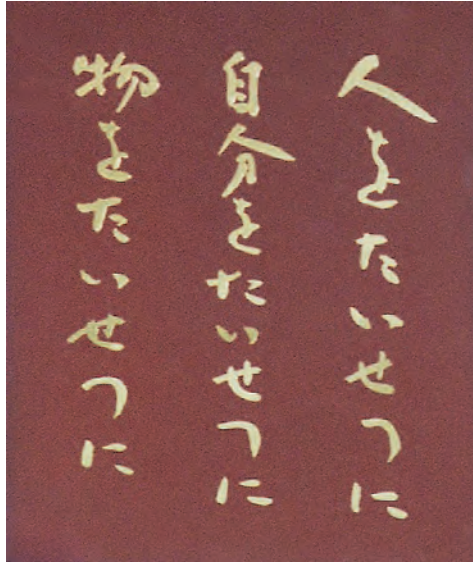 人をたいせつに
自分をたいせつに
物をたいせつに